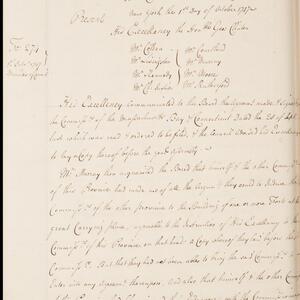 New York the 1st Day of October 1747
Present
His Excellency the Honble Geo: Clinton
Mr Colden Mr Courtland
Mr Livingston Mr Murray
Mr Kennedy Mr Moore
Mr Chief Justice Mr Rutherford
His Excellency Communicated to the Board the Agreement made & signed by the
Commissrs of the Massachusetts Bay & Connecticut Dated the 28 of Sept
last which was read & ordered to be filed, & the Council Advised his Excellency
to lay a Copy thereof before the
Mr Murray then acquainted the Board that himself & the other Commissrs
of this Province had made use of all the they could to Induce the
Commissrs of the other province to the Building of one or more Forts at the
great Carrying place, agreeable to the Instruction of His Excellency to the
Commissrs of this Province on that head a Copy whereof they laid before the
Commissrs But that they had not been able to bring the said Commissrs to
Enter into any Agreement thereupon. And also that himself & the other Commissrs